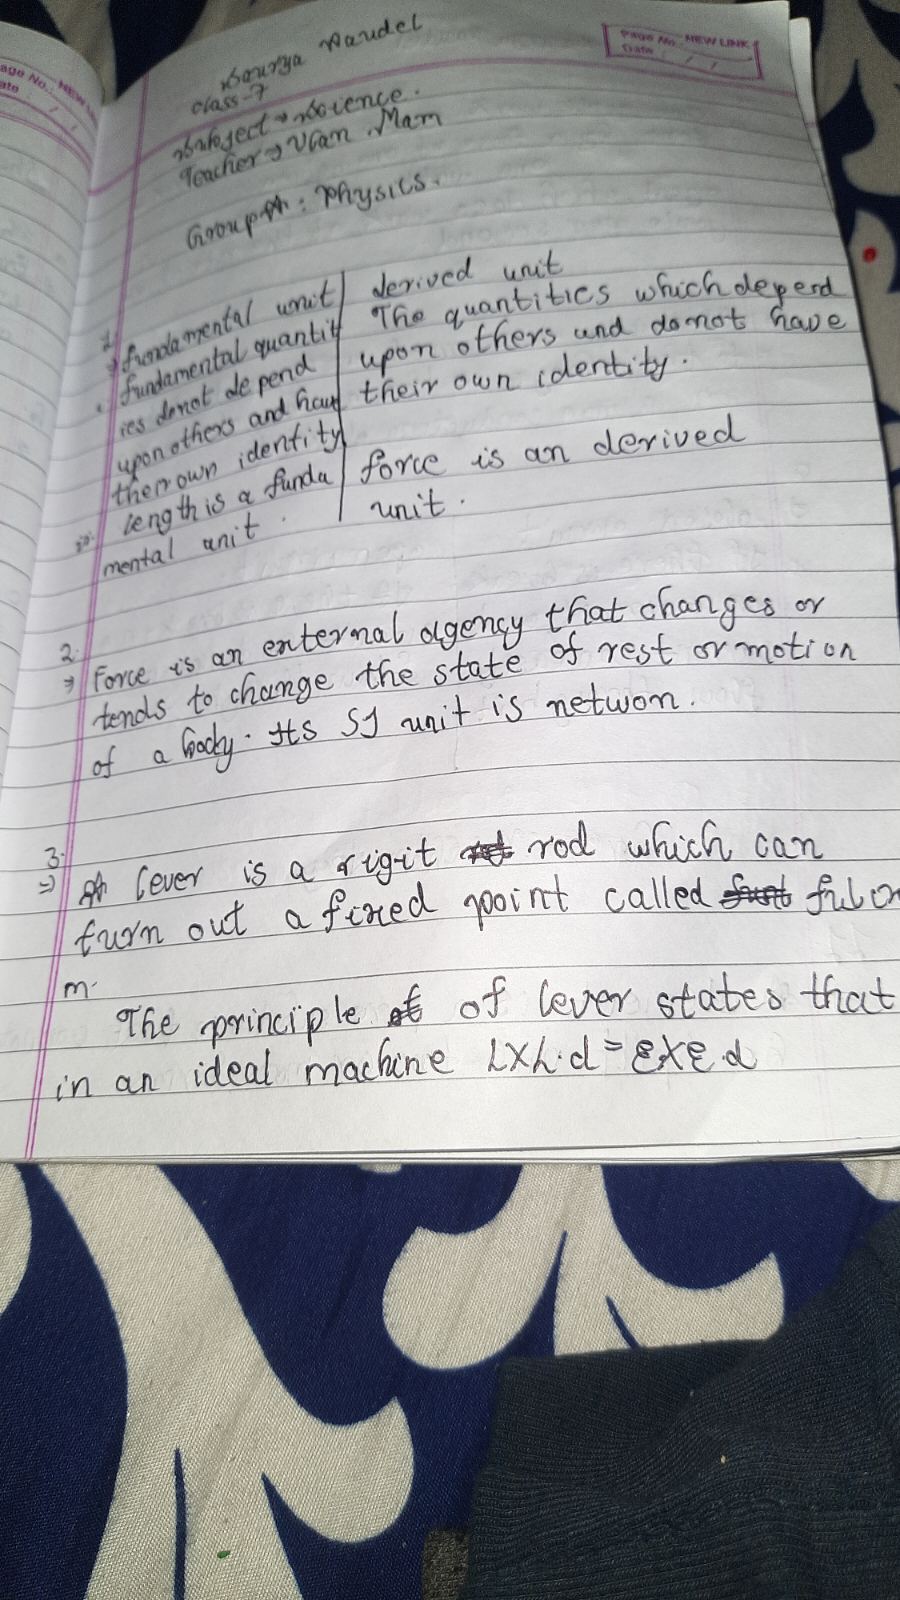 Page No.: NEW LINK
Date : / /
Page No.: NEW L
Date : / /
Sourya Paudel
Class-7
Subject → Science.
Teacher → Mam
Group A: Physics.
1.
→ fundamental unit | derived unit
i. fundamental quantit | The quantities which depend
ies donot depend | upon others and donot have
upon others and have | their own identity.
their own identity
ii. length is a funda | force is an derived
mental unit. | unit.
2.
→ Force is an external agency that changes or
tends to change the state of rest or motion
of a body. Its SI unit is netwon.
3.
⇒ A lever is a rigit rod which can
turn out a fixed point called fulcr
m.
The principle of lever states that
in an ideal machine L×L.d = E×E.d